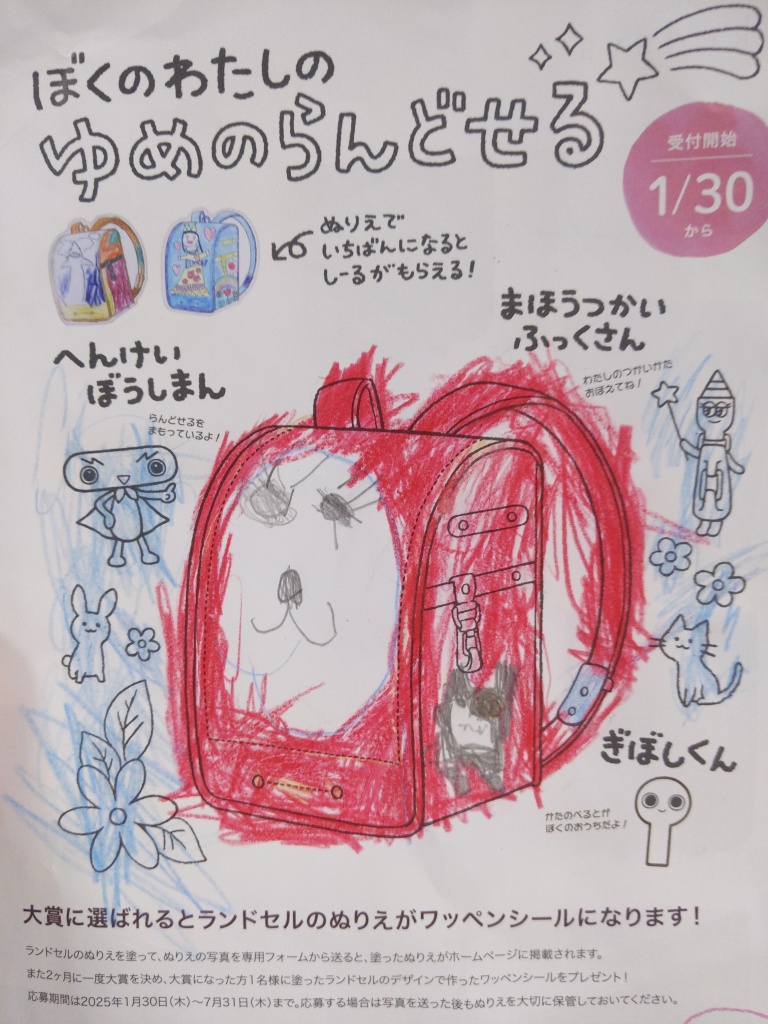 ぼくのわたしの
ゆめのらんどせる
受付開始
1/30
から
ぬりえで
いちばんになると
しーるがもらえる!
まほうつかい
ふっくさん
わたしのつかいかた
おぼえてね!
へんけい
ぼうしまん
らんどせるを
まもっているよ!
ぎぼしくん
かたのべるとが
ぼくのおうちだよ!
大賞に選ばれるとランドセルのぬりえがワッペンシールになります!
ランドセルのぬりえを塗って、ぬりえの写真を専用フォームから送ると、塗ったぬりえがホームページに掲載されます。
また2ヶ月に一度大賞を決め、大賞になった方1名様に塗ったランドセルのデザインで作ったワッペンシールをプレゼント!
応募期間は2025年1月30日(木)〜7月31日(木)まで。応募する場合は写真を送った後もぬりえを大切に保管しておいてください。